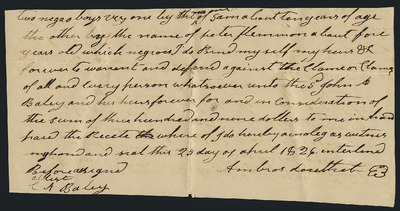 two negro boys vez one by the name of Sam about ten years of age
the other by the name of peter flemmon about fore
years old which negros I do bind my self my heirs &c
forever to warent and defend against the Clame or Clams
of all and Every person whatsoever unto the sd John B
Baley and his heirs forever for and in Consideration of
the sum of three hundred and none dollers to me in hand
paid the Recete where of I do hereby acnoleg as witness
my hand and seal this 25 day of april 1826 interlind
Before asigned
attest
A Baley
Ambros